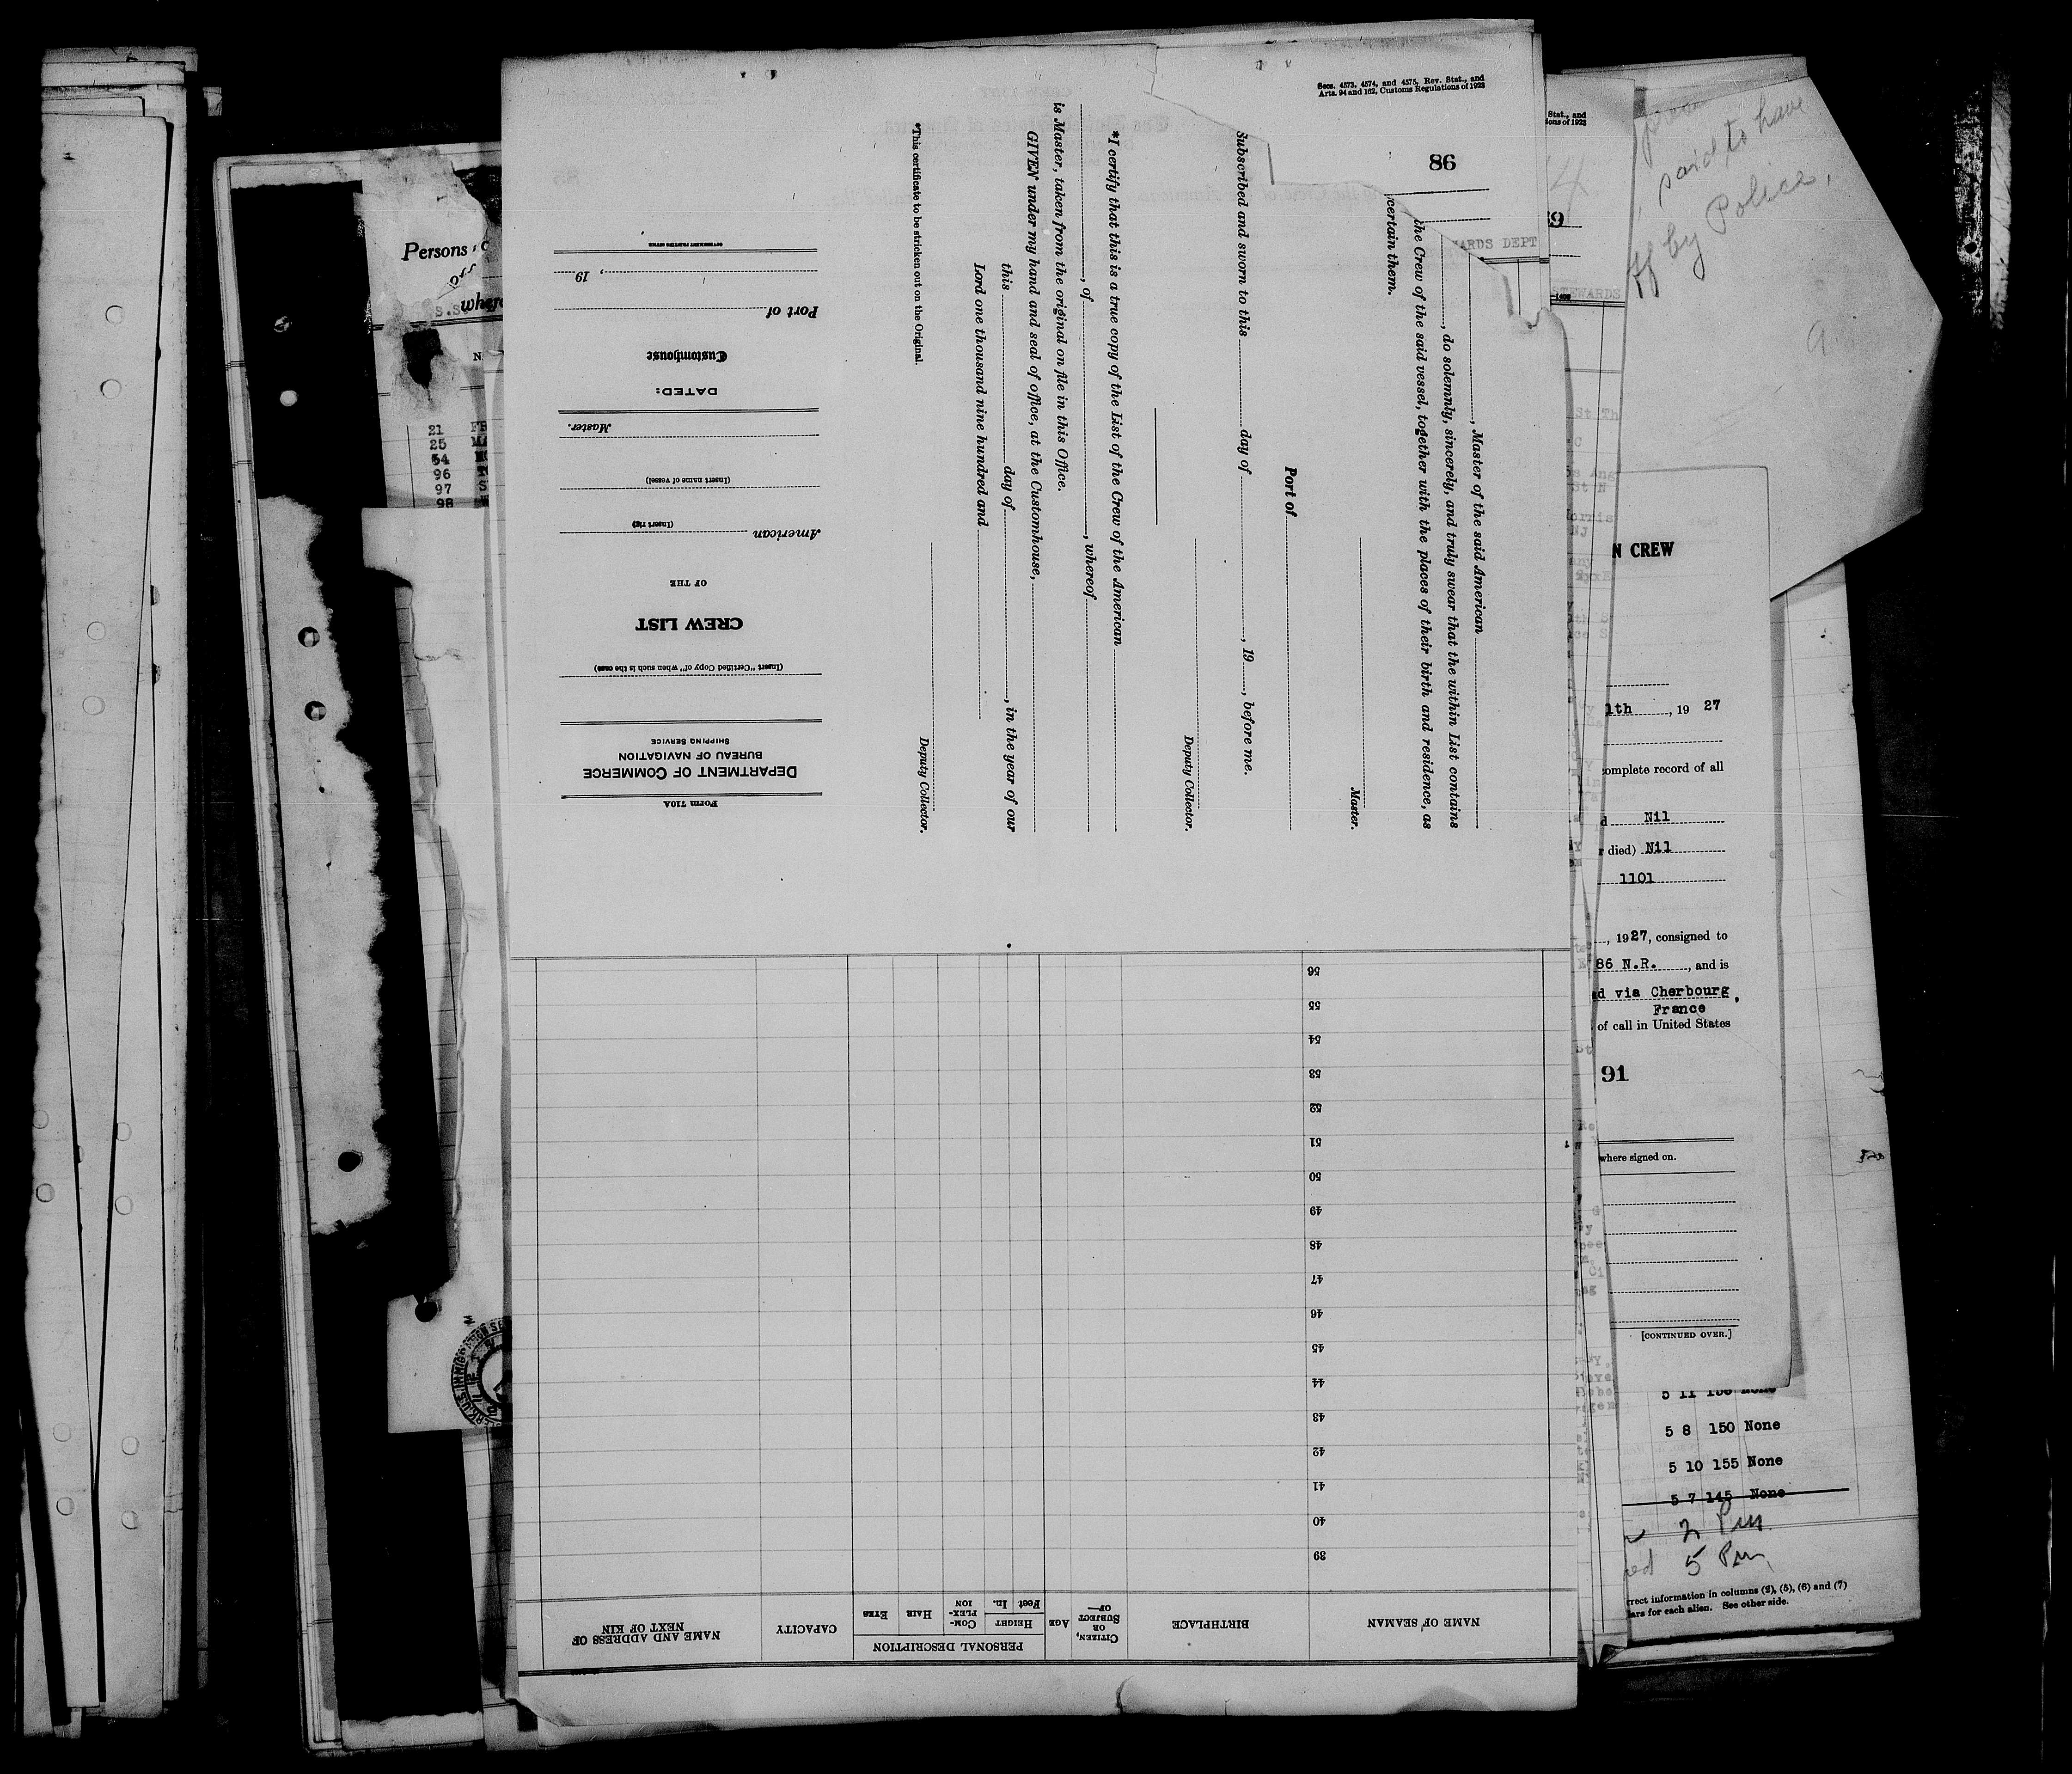 Secs. 4573, 4574, and 4575, Rev. Stat., and
Arts. 94 and 162, Customs Regulations of 1923
86
, Master of the said American
, do solemnly, sincerely, and truly swear that the within List contains
the Crew of the said vessel, together with the places of their birth and residence, as
certain them.
Master.
Port of
Subscribed and sworn to this day of , 19 , before me.
Deputy Collector.
*I certify that this is a true copy of the List of the Crew of the American
, of , whereof
is Master, taken from the original on file in this Office.
GIVEN under my hand and seal of office, at the Customhouse,
this day of , in the year of our
Lord one thousand nine hundred and
Deputy Collector.
*This certificate to be stricken out on the Original.
Form 710A
DEPARTMENT OF COMMERCE
BUREAU OF NAVIGATION
SHIPPING SERVICE
(Insert "Certified Copy of" when such is the case)
CREW LIST
OF THE
American
(Insert rig)
(Insert name of vessel)
Master.
DATED:
Customhouse
Port of
, 19
GOVERNMENT PRINTING OFFICE
NAME OF SEAMAN
BIRTHPLACE
CITIZEN, OR SUBJECT OF—
AGE
PERSONAL DESCRIPTION
HEIGHT
Feet In.
COM-PLEX-ION
HAIR
EYES
CAPACITY
NAME AND ADDRESS OF NEXT OF KIN
39
40
41
42
43
44
45
46
47
48
49
50
51
52
53
54
55
56
Persons
of
where
S.S.
21
25
54
96
97
98
Stat., and
ions of 1923
ARDS DEPT
STEWARDS
said to have
off by Police,
N CREW
1th , 19 27
complete record of all
Nil
r died) Nil
1101
, 1927, consigned to
86 N.R. , and is
d via Cherbourg,
France
of call in United States
91
where signed on.
[CONTINUED OVER.]
5 8 150 None
5 10 155 None
5 7 145 None
2 Pm
5 Pm
rrect information in columns (2), (5), (6) and (7)
lars for each alien. See other side.